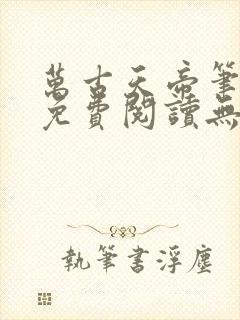 萬古天帝筆
免費閱讀無
執筆書浮塵